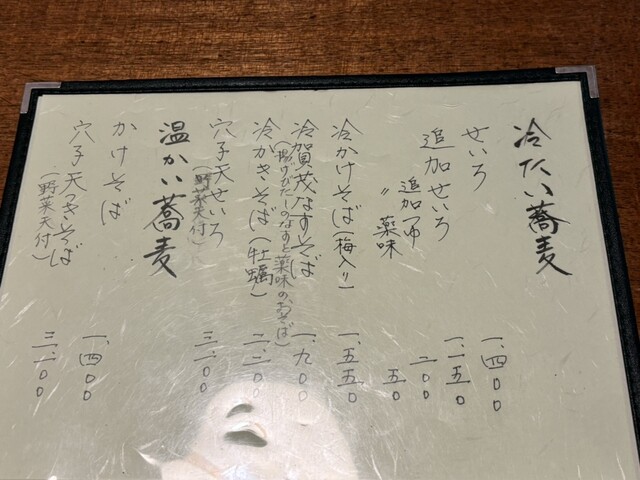 冷たい蕎麦
せいろ 一、四〇〇
追加せいろ 一、一五〇
追加つゆ 二〇〇
〃 薬味 五〇
冷かけそば(梅入り) 一、五五〇
冷賀茂なすそば 一、九〇〇
(揚げびたしのなすと薬味のおそば)
冷かきそば(牡蠣) 二、二〇〇
穴子天せいろ 三、一〇〇
(野菜天付)
温かい蕎麦
かけそば 一、四〇〇
穴子天つきそば 三、一〇〇
(野菜天付)